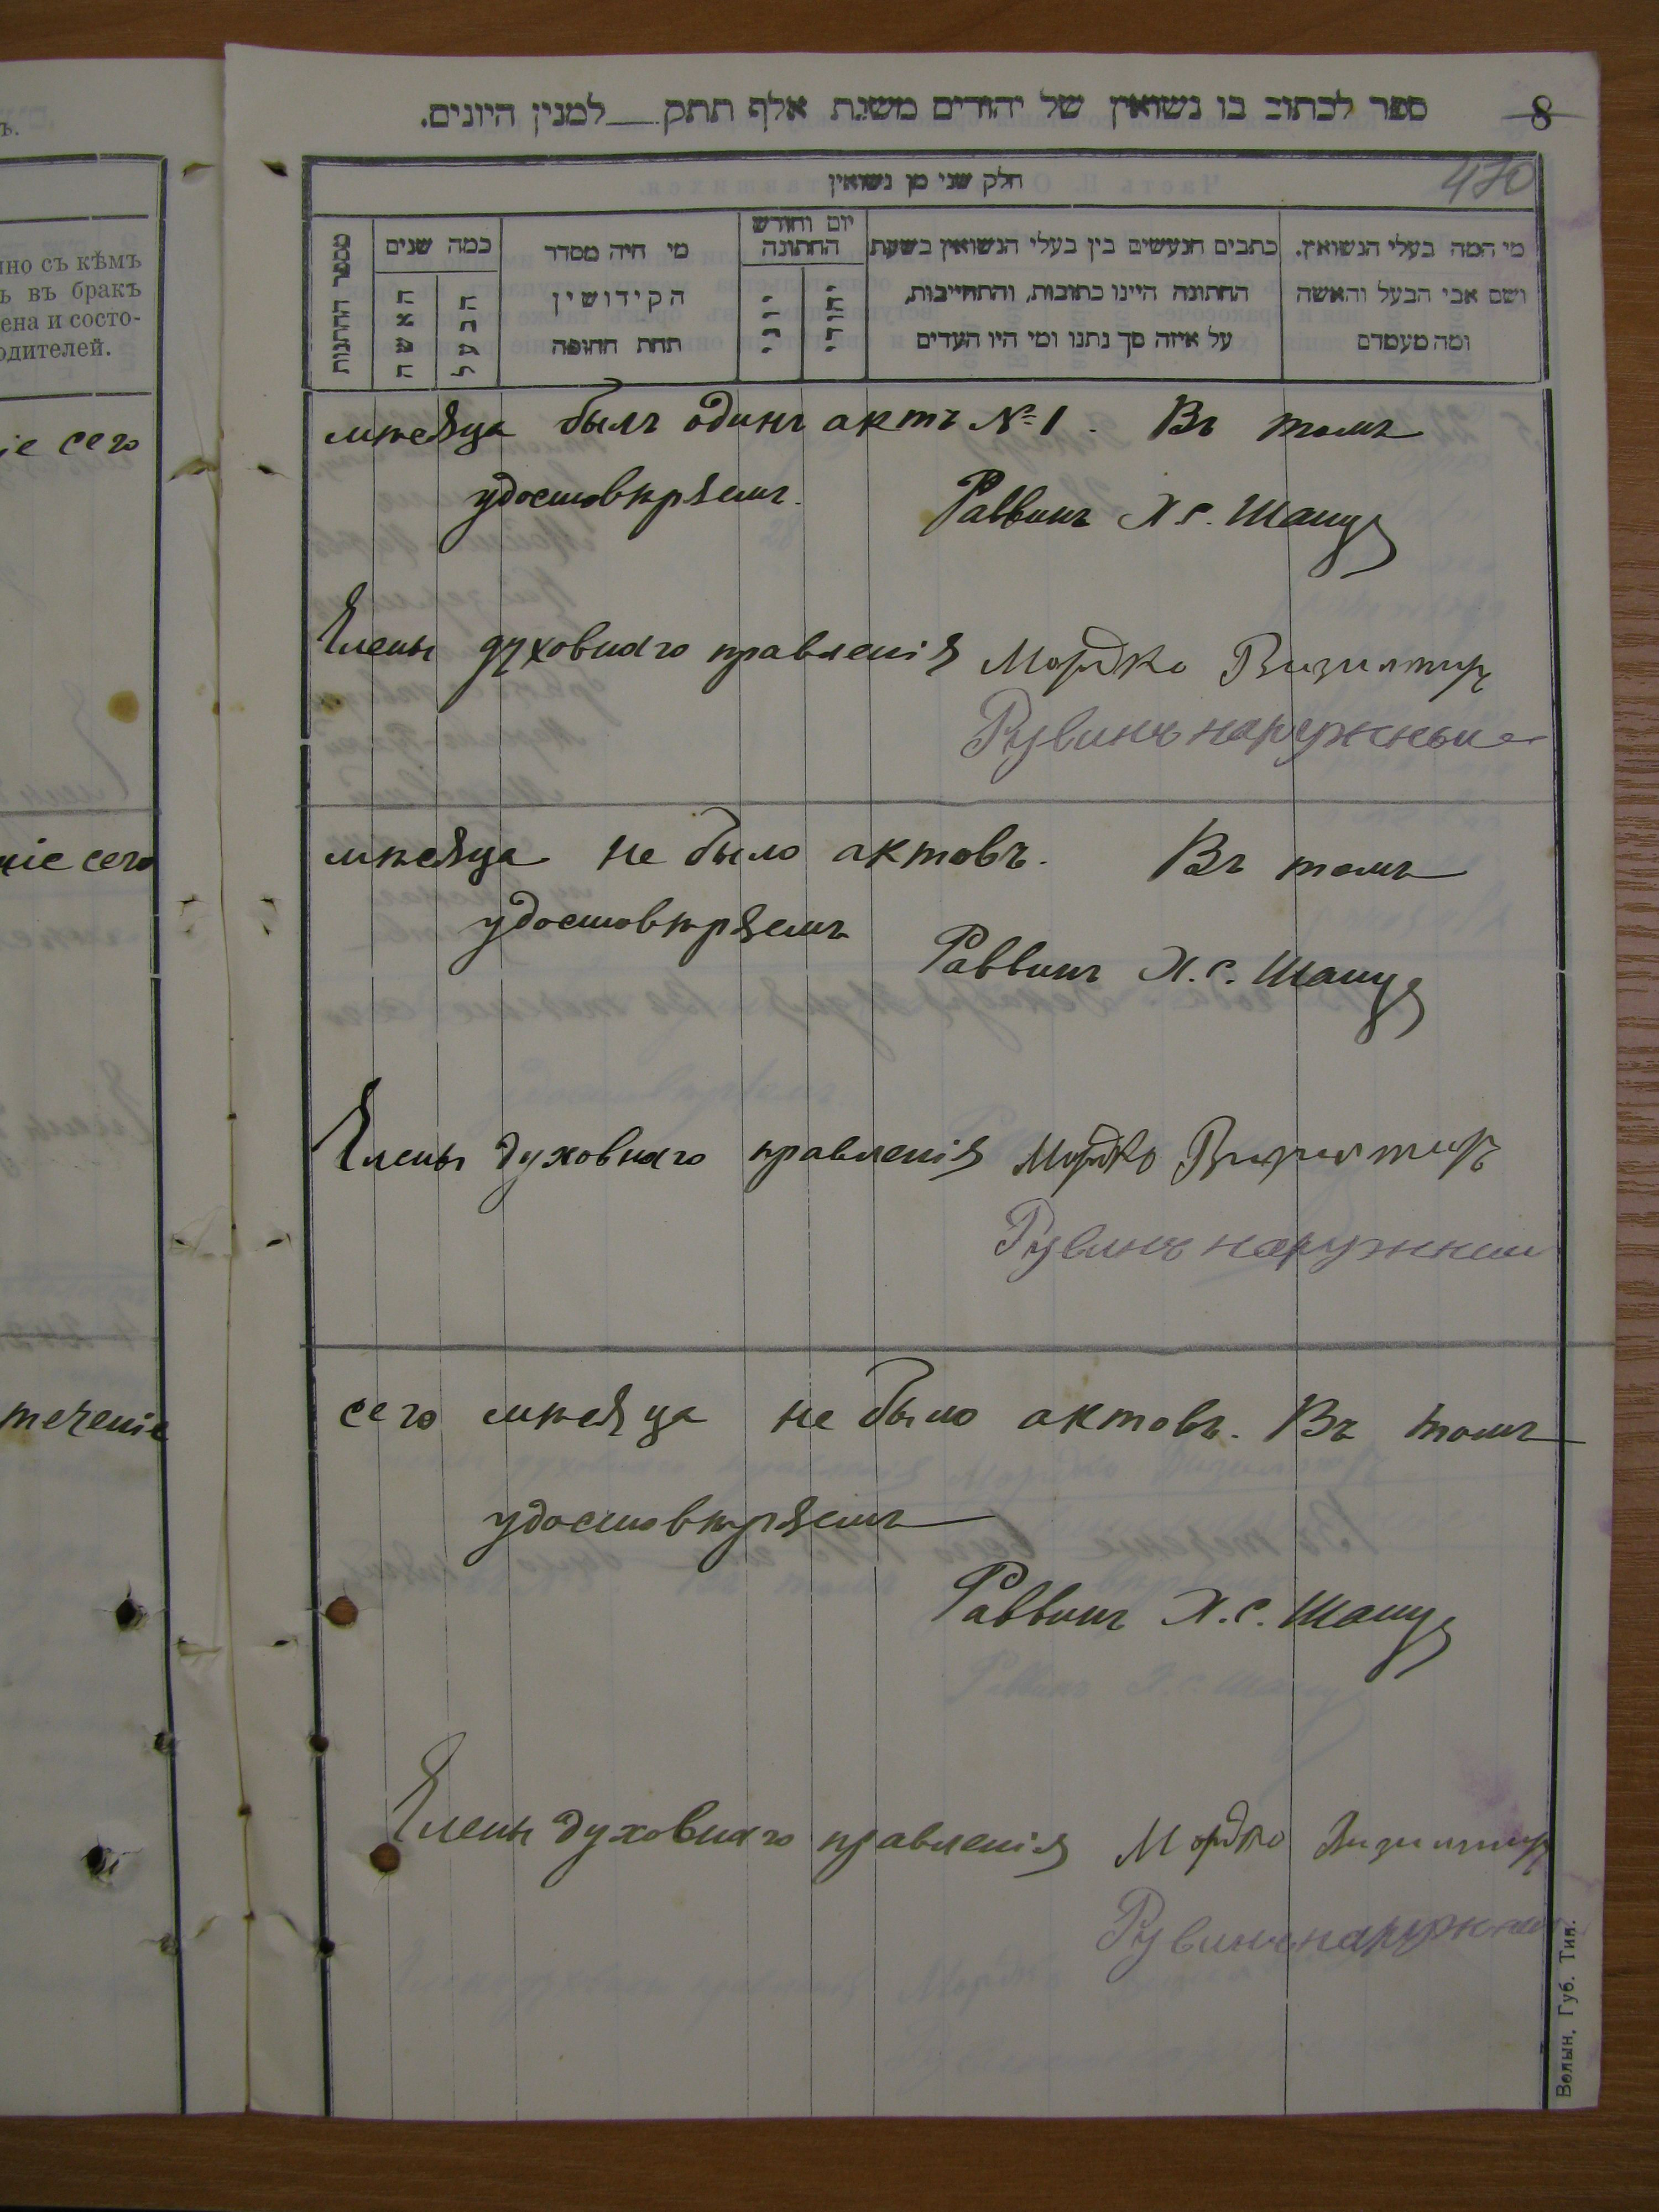 ъ.
но съ кѣмъ
ь въ бракъ
ена и состо-
одителей.
іе сего
ніе сего
теченіе
ספר לכתוב בו נשואין של יהודים משנת אלף תתק ____ למנין היונים.
8
470
חלק שני מן נשואין
מספר החתנות
כמה שנים
האשה
הבעל
מי היה מסדר
הקידושין
תחת החופה
יום וחודש
החתונה
יוני
יהודי
כתבים הנעשים בין בעלי הנשואין בשעת
החתונה היינו כתובות, והתחייבות,
על איזה סך נתנו ומי היו העדים
מי המה בעלי הנשואין.
ושם אבי הבעל והאשה
ומה מעמדם
мѣсяца былъ одинъ актъ № 1. Въ томъ
удостовѣряемъ.
Раввинъ Х. С. Шапуд
Члены духовнаго правленія Мордко
Рувинъ наружный
мѣсяца не было актовъ. Въ томъ
удостовѣряемъ
Раввинъ Х. С.
Члены духовнаго правленія Мордко
Рувинъ наружный
сего мѣсяца не было актовъ. Въ томъ
удостовѣряемъ
Раввинъ Х. С.
Члены духовнаго правленія Мордко
Рувинъ наружный
Волын. Губ. Тип.